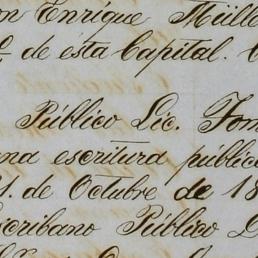 on Enrique Müll
de ésta Capital.
Público Lic. Tom
na escritura públic
1. de Octubre de 18
scribano Público